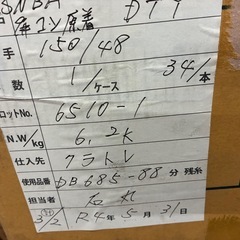 SNBA DTY
手 150/48
数 1/ケース 34/本
ロットNo. 6510-1
N.W/kg 6.2K
仕入先 クラトレ
使用品番 DB685-88 分 残糸
担当者
3/2 R4年5月31日